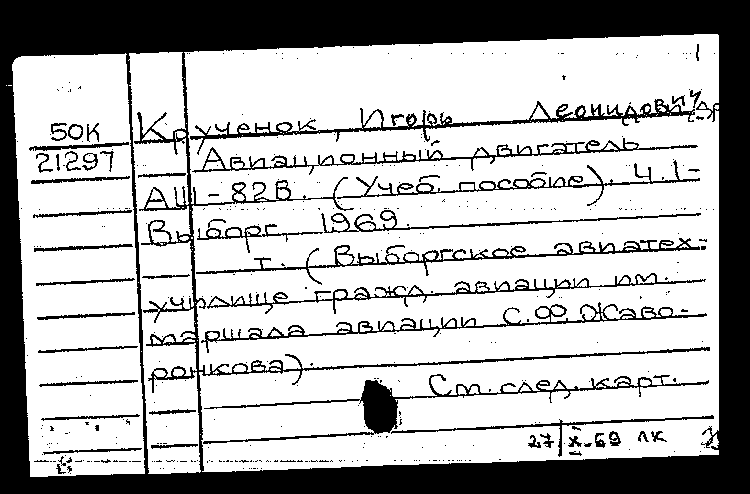 1
50К Крученок, Игорь Леонидович
21297 Авиационный двигатель
АШ-82В. (Учеб. пособие). Ч.1-
Выборг, 1969.
т. (Выборгское авиатех-
училище гражд. авиации им.
маршала авиации С.Ф. Жаво-
ронкова).
См. след. карт.
27/X-69 ЛК